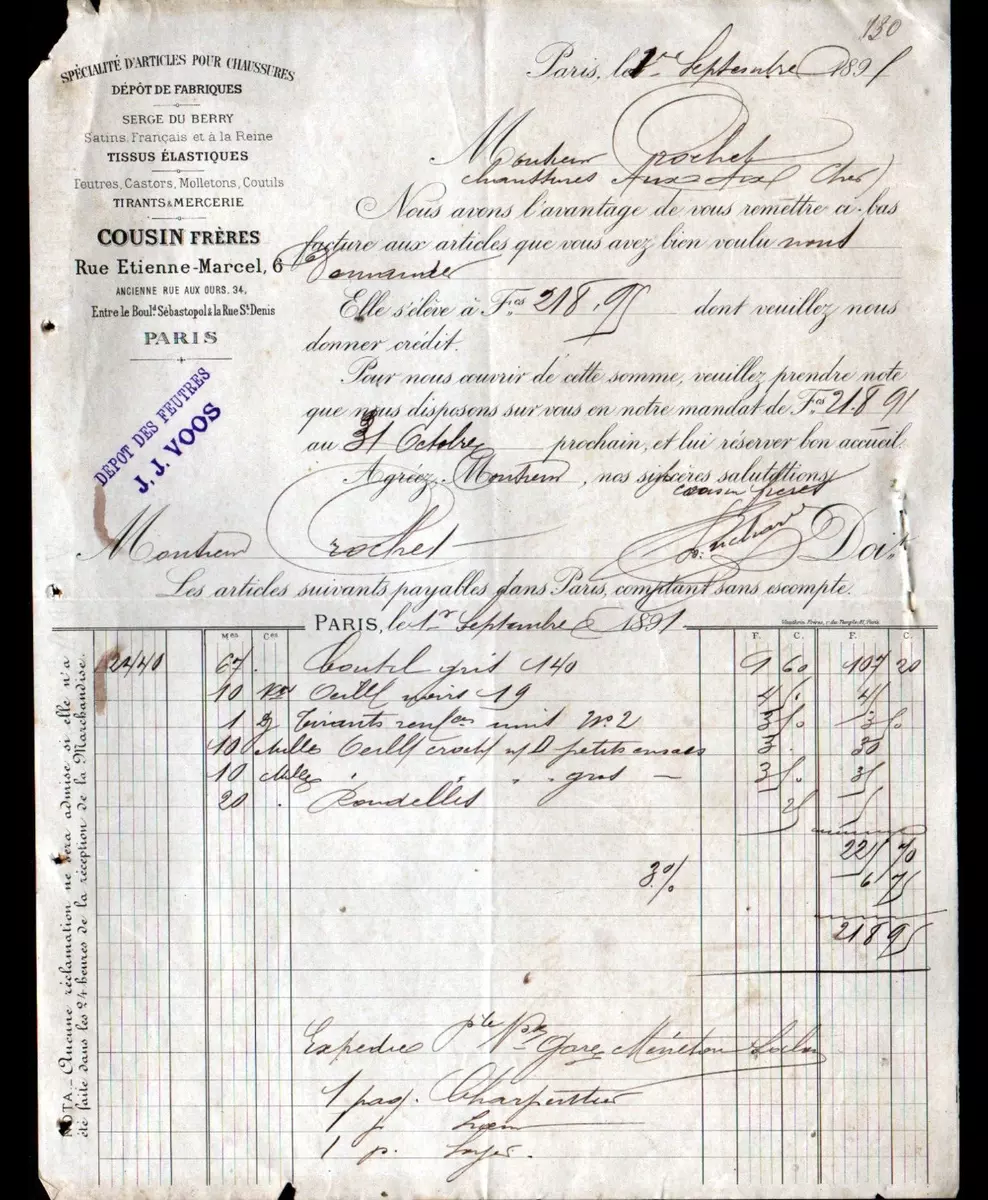 130
SPÉCIALITÉ D'ARTICLES POUR CHAUSSURES
DÉPÔT DE FABRIQUES
SERGE DU BERRY
Satins Français et à la Reine
TISSUS ÉLASTIQUES
Feutres, Castors, Molletons, Coutils
TIRANTS & MERCERIE
COUSIN FRÈRES
Rue Etienne-Marcel, 6
ANCIENNE RUE AUX OURS, 34,
Entre le Boul.d Sébastopol & la Rue St Denis
PARIS
DEPOT DES FEUTRES
J. J. VOOS
Paris, le 1er Septembre 1891
Monsieur Crochet
chaussures Aux Aix (Cher)
Nous avons l'avantage de vous remettre ci-bas
facture aux articles que vous avez bien voulu nous
Demander
Elle s'élève à Fcs 218,95 dont veuillez nous
donner crédit.
Pour nous couvrir de cette somme, veuillez prendre note
que nous disposons sur vous en notre mandat de Fcs 218 95
au 31 Octobre prochain, et lui réserver bon accueil.
Agréez, Monsieur, nos sincères salutations
Cousin frères
Monsieur Crochet Doit
Les articles suivants payables dans Paris, comptant sans escompte.
PARIS, le 1er Septembre 1891
Mes Ces F. C. F. C.
22440 67 Coutil gris 140 9 60 107 20
10 Oeill noirs 19 4
1 Tirants unit No 2
10 Mille Oeill petits 3 30
10 Mille " " " gros 35
20 Rondelles 25 5
225 70
3% 6 75
218 95
Expédié Gare Menetou
1 paq. Charpentier
1 p.
1 p.
NOTA.- Aucune réclamation ne sera admise si elle n'a
été faite dans les 24 heures de la réception de la Marchandise.